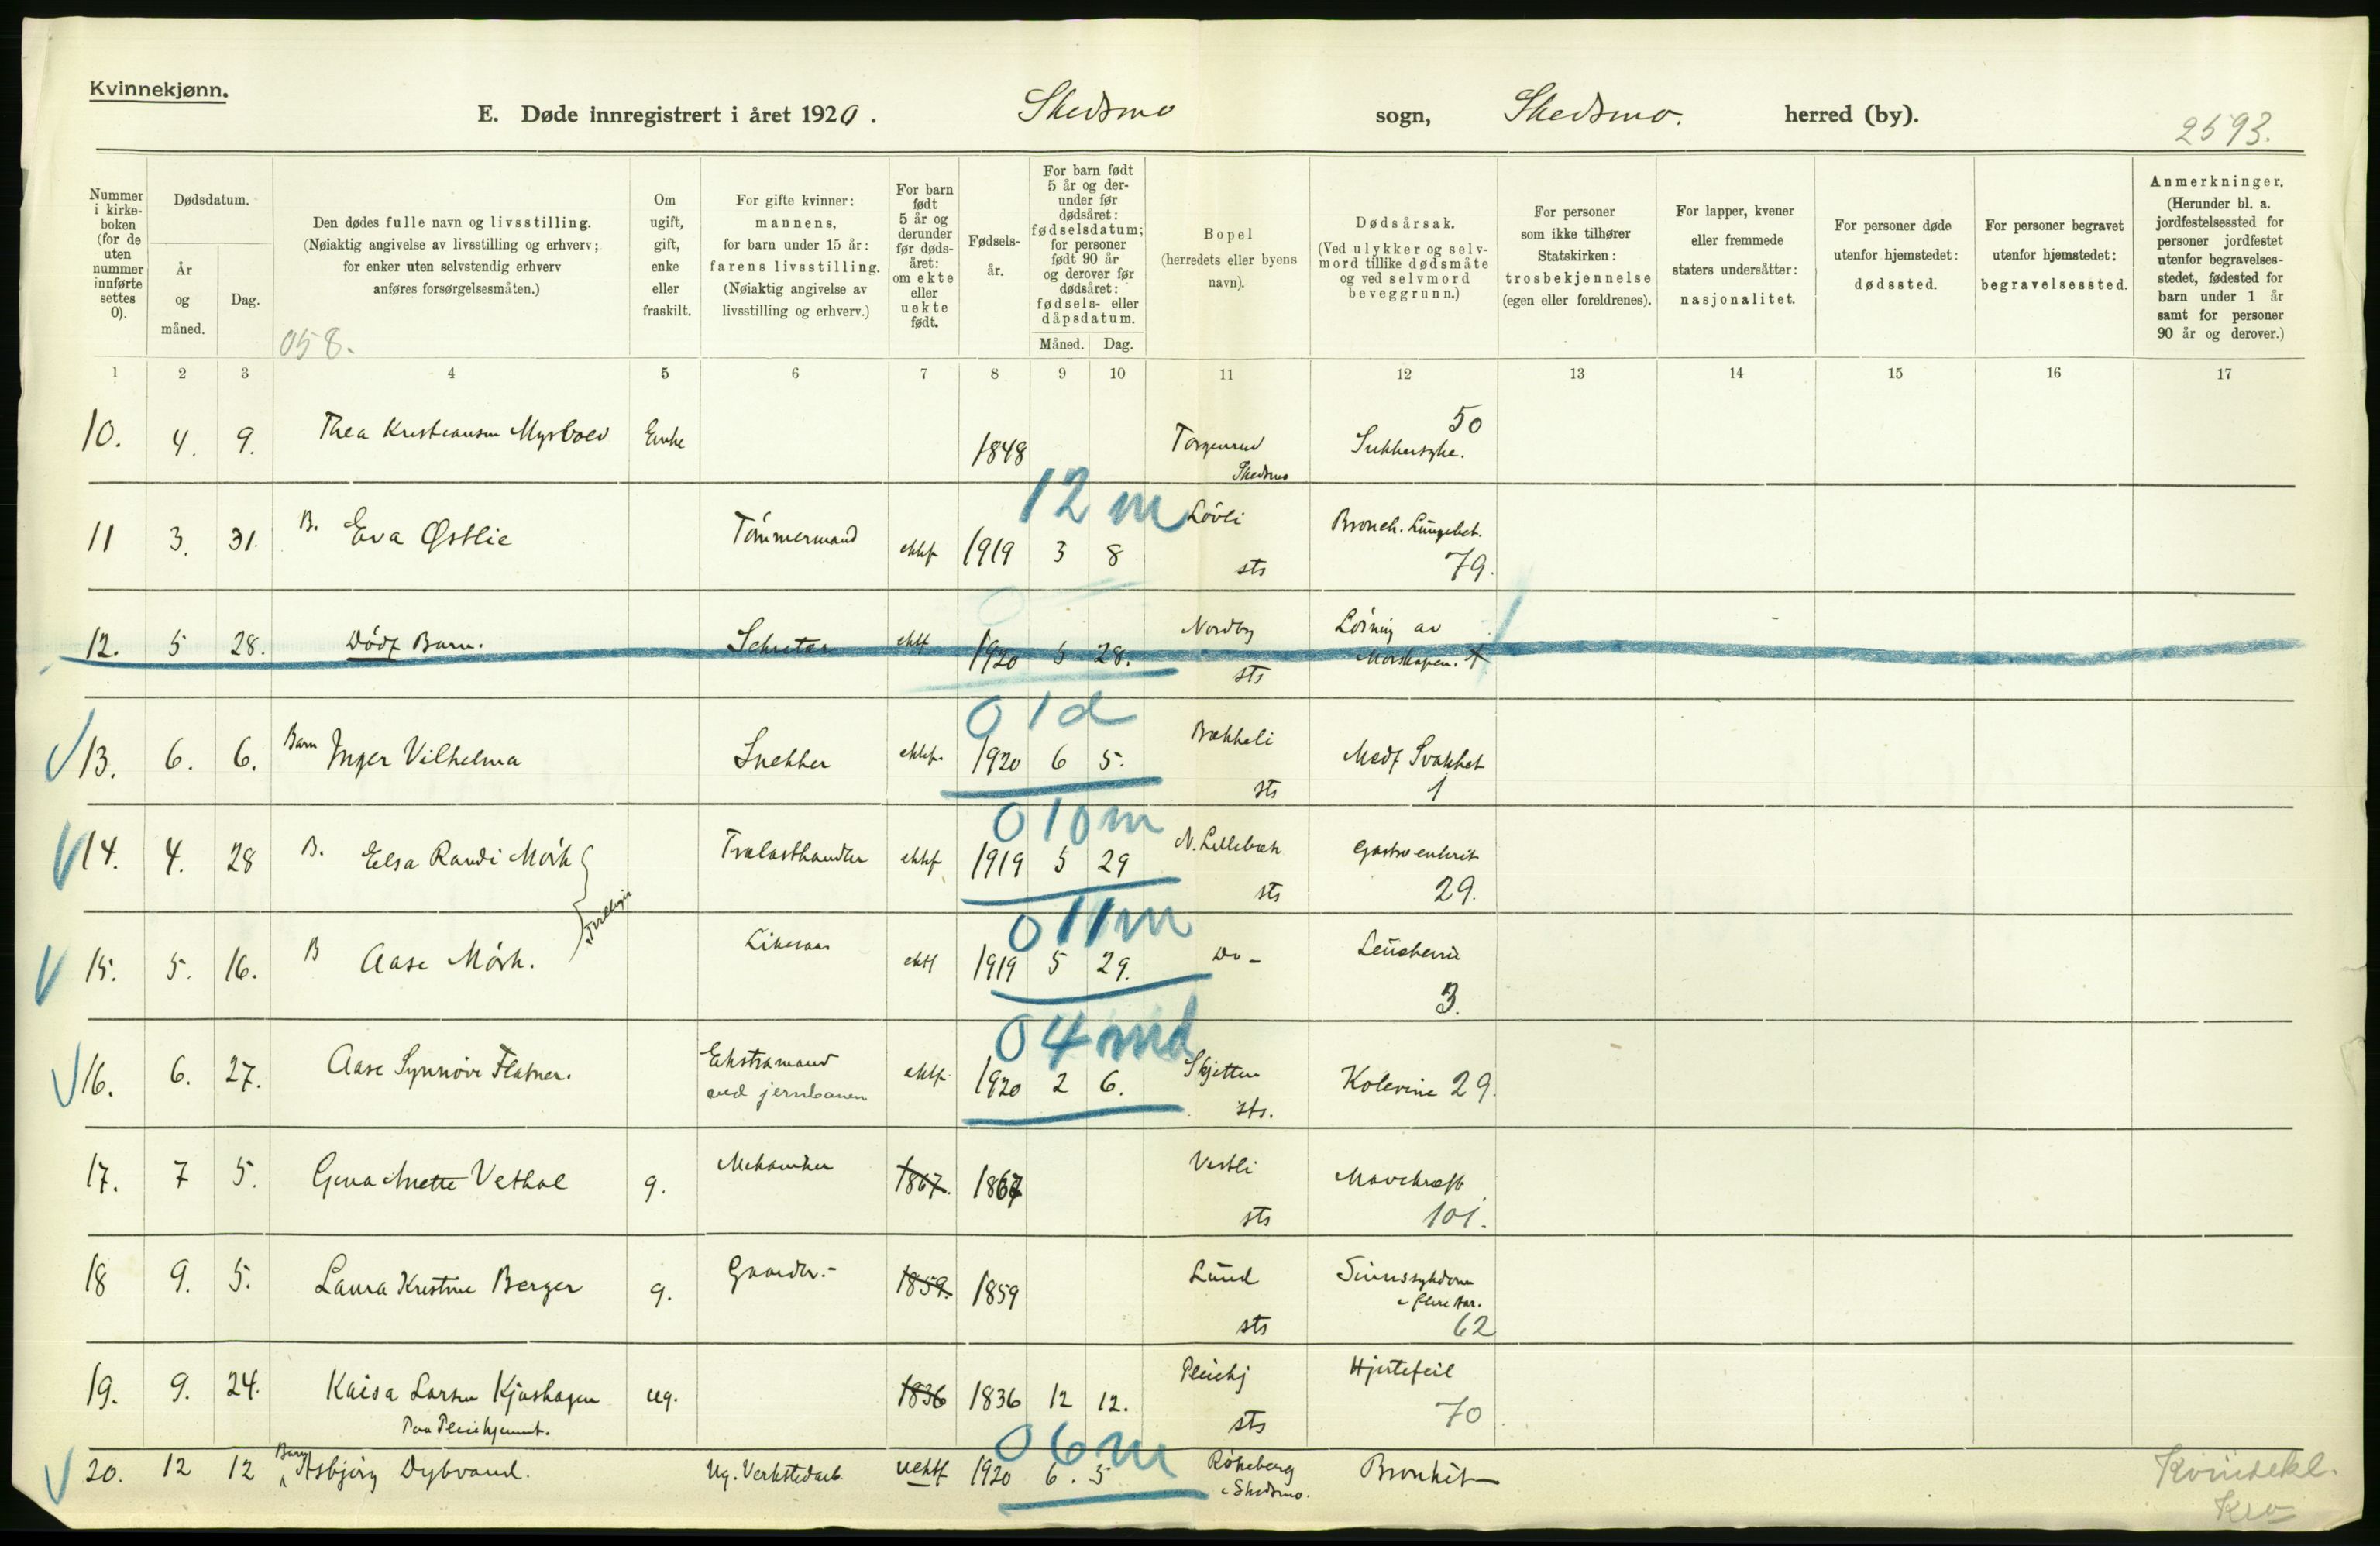 Kvinnekjønn.
E. Døde innregistrert i året 1920. Skedsmo sogn, Skedsmo. herred (by). 2593.
Nummer i kirke-boken (for de uten nummer innførte settes 0).
Dødsdatum.
År og måned.
Dag.
Den dødes fulle navn og livsstilling.
(Nøiaktig angivelse av livsstilling og erhverv;
for enker uten selvstendig erhverv
anføres forsørgelsesmåten.)
058.
Om ugift, gift, enke eller fraskilt.
For gifte kvinner: mannens, for barn under 15 år: farens livsstilling. (Nøiaktig angivelse av livsstilling og erhverv.)
For barn født 5 år og derunder før døds-året: om ekte eller uekte født.
Fødsels-år.
For barn født 5 år og der-under før dødsåret: fødselsdatum; for personer født 90 år og derover før dødsåret: fødsels- eller dåpsdatum.
Måned. Dag.
Bopel (herredets eller byens navn).
Dødsårsak. (Ved ulykker og selv-mord tillike dødsmåte og ved selvmord beveggrunn.)
For personer som ikke tilhører Statskirken: trosbekjennelse (egen eller foreldrenes).
For lapper, kvener eller fremmede staters undersåtter: nasjonalitet.
For personer døde utenfor hjemstedet: dødssted.
For personer begravet utenfor hjemstedet: begravelsessted.
Anmerkninger. (Herunder bl. a. jordfestelsessted for personer jordfestet utenfor begravelses-stedet, fødested for barn under 1 år samt for personer 90 år og derover.)
1 2 3 4 5 6 7 8 9 10 11 12 13 14 15 16 17
10. 4. 9. Thea Kristiansen Enke 1848 Skedsmo Sukkersyke. 50
12 m
11 3. 31. B. Eva Østlie Tømmermand ektf 1919 3 8 Løvli sts Bronch. Lungebet. 79.
12. 5 28. Dødf Barn. Sekretær ektf 1920 5 28. Nordby sts Løsning av Morkaken. 1
0 1 d
13. 6. 6. Barn Inger Vilhelma Snekker ektf. 1920 6 5. Bekkeli sts Medf Svakhet 1
0 10 m
14. 4. 28 B. Elsa Randi Mørk Trælasthandler ektf 1919 5 29 N. Lillebæk sts Gastroenterit 29.
Tvillinger
0 11 m
15. 5. 16. B Aase Mørk. Likesaa ektf 1919 5 29. Do - Leuchemi 3.
0 4 md
16. 6. 27. Aase Synnøve Flatner. Ekstramand ved jernbanen ektf. 1920 2 6. Skjetten sts. Kolerine 29.
17. 7 5. Gina Anette Vethal g. Mekaniker 1867. 1867 Vestli sts Mavekræft 101.
18 9. 5. Laura Kristine Berger g. Gaardbr.- 1859. 1859 Lund sts Sinnssykdom i flere Aar. 62
19. 9. 24. Kaisa Larsen Kjoshagen Paa Pleiehjemmet. ug. 1836 1836 12 12. Pleiehj sts Hjertefeil 70
0 6 m
20. 12 12 Barn Asbjørg Dybvand. Ug. Verkstedarb. uektf 1920 6. 5 Røkeberg i Skedsmo. Bronkit
Kvindekl.
Kra